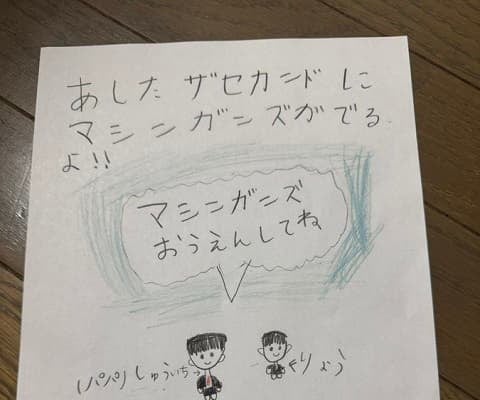 あした ザセカンドに
マシンガンズがでる
よ!!
マシンガンズ
おうえんしてね
パパ しゅういち→
←りょう